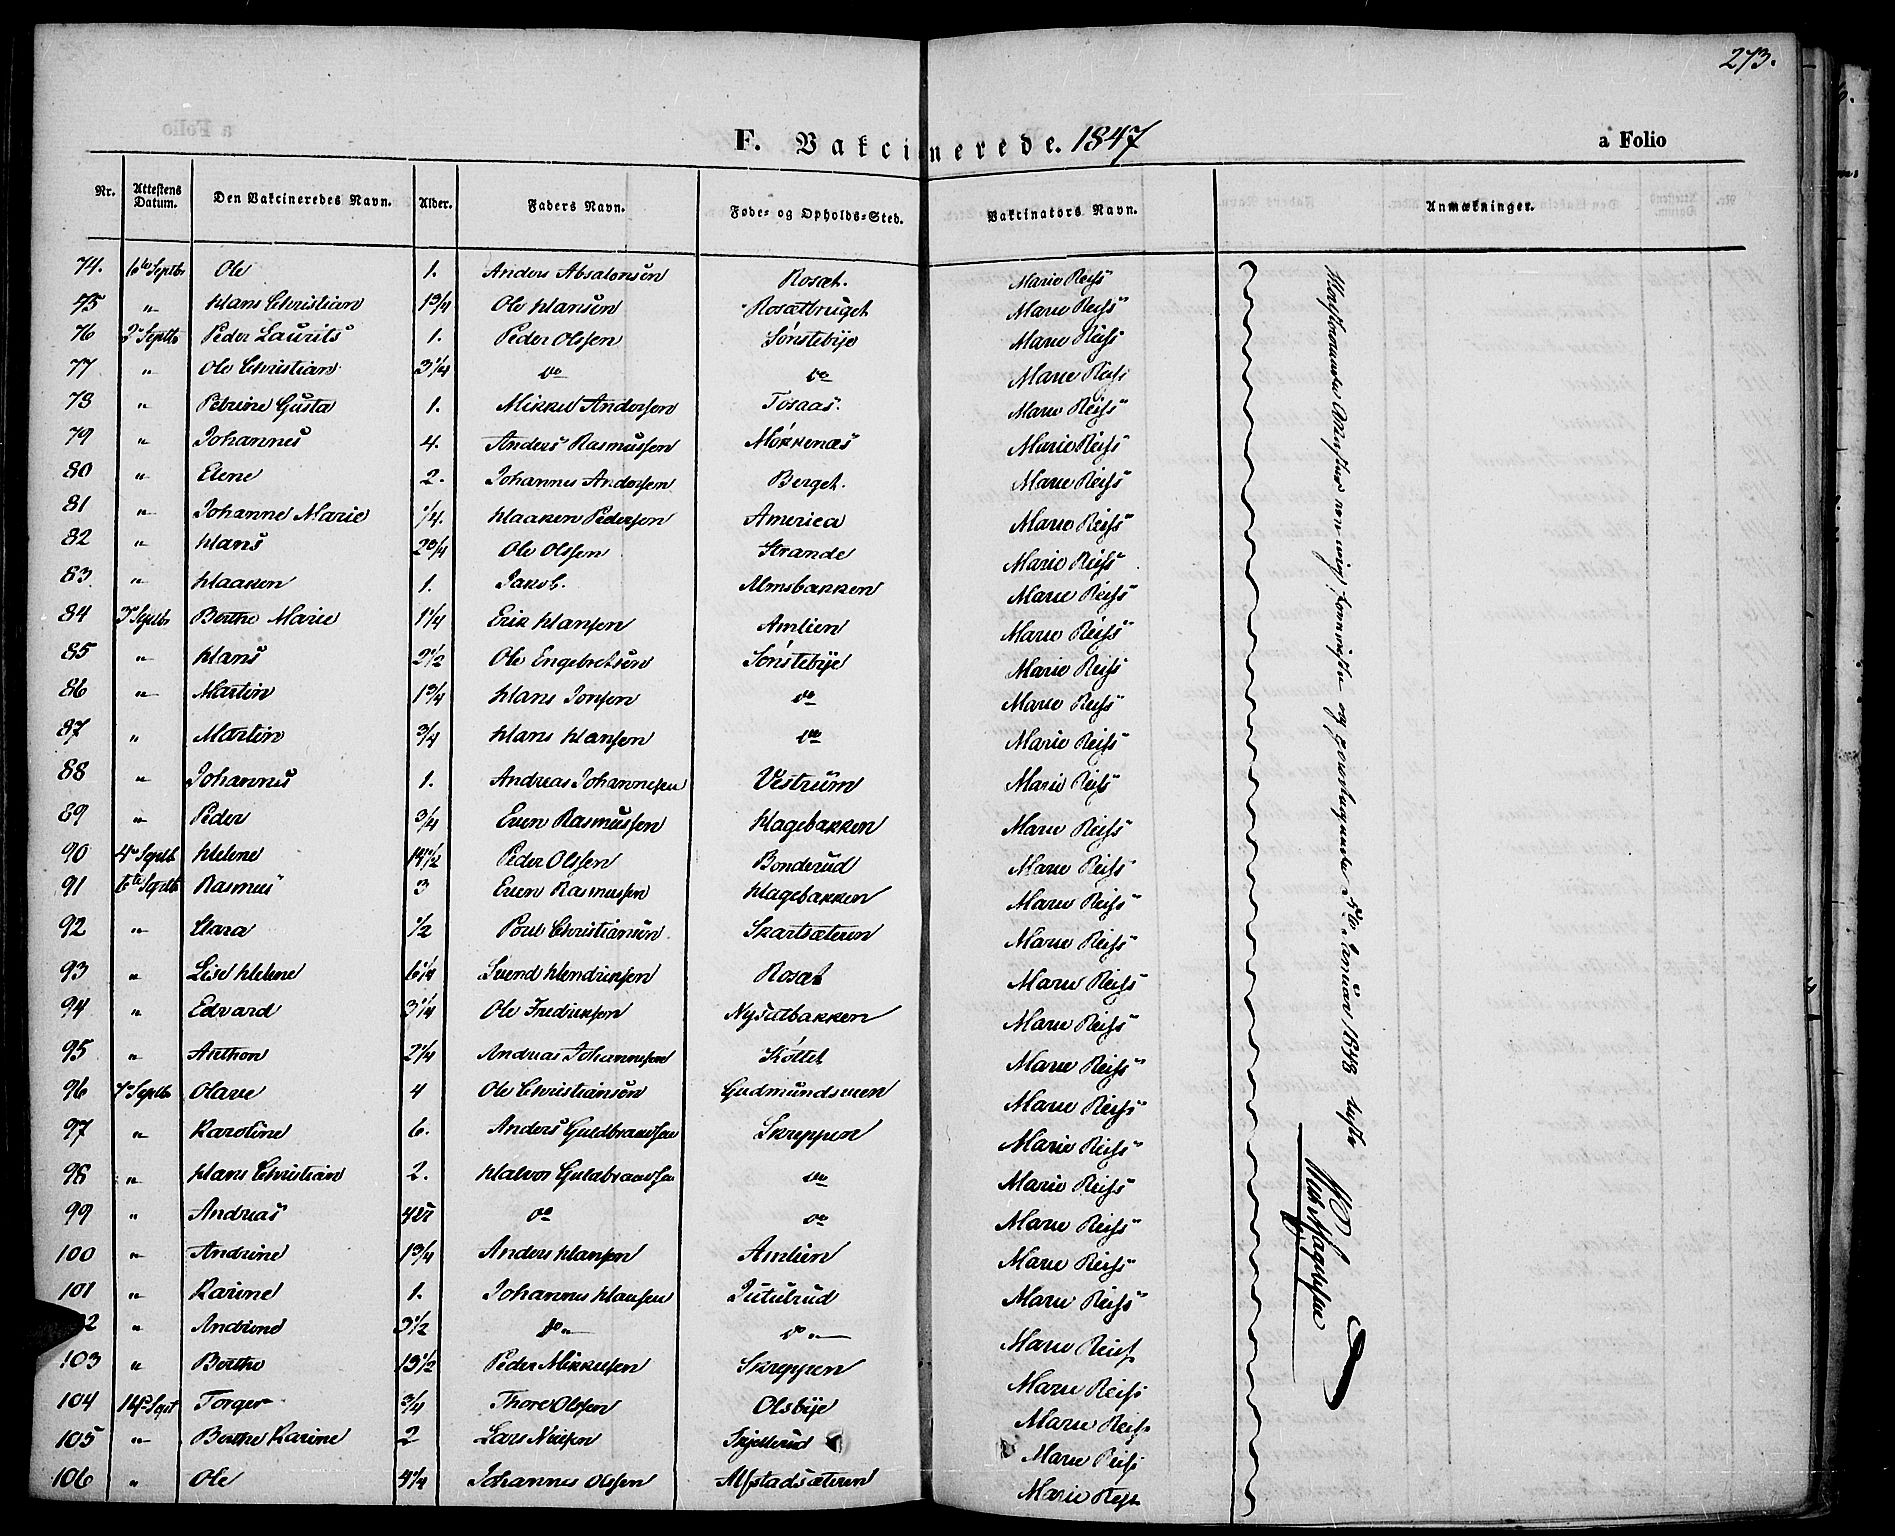 273.
F. Vakcinerede. 1847
a Folio
Nr. Attestens Datum. Den Vakcineredes Navn. Alder. Faders Navn. Føde- og Opholds-Sted. Vakcinators Navn. Anmærkninger.
74. 6te Septb Ole 1. Anders Absalonsen Rosæt. Marie Reiss
75 " Hans Christian 1 3/4 Ole Hansen Rosætbruget Marie Reiss
76 3die Septb Peder Laurits 1. Peder Olssen Sønstebye Marie Reiss
77 " Ole Christian 3 1/4 do do Marie Reiss
78 " Petrine Gusta 1. Mikkel Anderssen Tosaas. Marie Reiss
79 " Johannes 4. Anders Rasmussen Møkkenæs Marie Reiss
80 " Elene 2. Johannes Anderssen Berget. Marie Reiss
81 " Johanne Marie 1/4. Haaken Pederssen America Marie Reiss
82 " Hans 2 3/4 Ole Olssen Strande Marie Reiss
83. " Haaken 1. Jakob. Almsbakken Marie Reiss
84 3 Septb Berthe Marie 1 1/4 Erik Hanssen Amlien Marie Reiss
85 " Hans 2 1/2 Ole Engebretsen Sønstebye Marie Reiss
86 " Martin 1 3/4 Hans Jonssen do Marie Reiss
87 " Martin 3/4 Hans Hanssen do Marie Reiss
88 " Johannes 1. Andreas Johannesen Vestrum Marie Reiss
89 " Peder 3/4 Even Rasmussen Hagebakken Marie Reiss
90 4 Septb Helene 1/2 Peder Olssen Bonderud Marie Reiss
91 6te Septb Rasmus 3 Even Rasmussen Hagebakken Marie Reiss
92 " Clara 1/2 Poul Christiansen Skartsæteren Marie Reiss
93 " Lise Helene 6 1/4 Svend Hendrikssen Rosæt Marie Reiss
94 " Edvard 3 1/4 Ole Fredrikssen Nysætbakken Marie Reiss
95 " Anthon 2 1/4 Andreas Johannessen Skøttet Marie Reiss
96 7 Septb Olave 4 Ole Christiansen Gudmundsveen Marie Reiss
97 " Karoline 6. Anders Guldbrandsen Skreppen Marie Reiss
98 " Hans Christian 2. Halvor Guldbrandsen do Marie Reiss
99 " Andreas do do Marie Reiss
100 " Andrine 1 3/4 Anders Hanssen Amlien Marie Reiss
101 " Karine 1. Johannes Hanssen Jutulrud Marie Reiss
2 " Andrine 3 1/2 do " do " Marie Reiss
103 " Berthe 13 1/2 Peder Mikkelsen Skreppen Marie Reiss
104 14 Sept Torger 3/4 Thore Olssen Olsbye Marie Reiss
105 " Berthe Karine 2 Lars Nielsen Skjellerud Marie Reiss
106 " Ole 4 1/4 Johannes Olssen Alfstadsæteren Marie Reiss
og Januar 1848